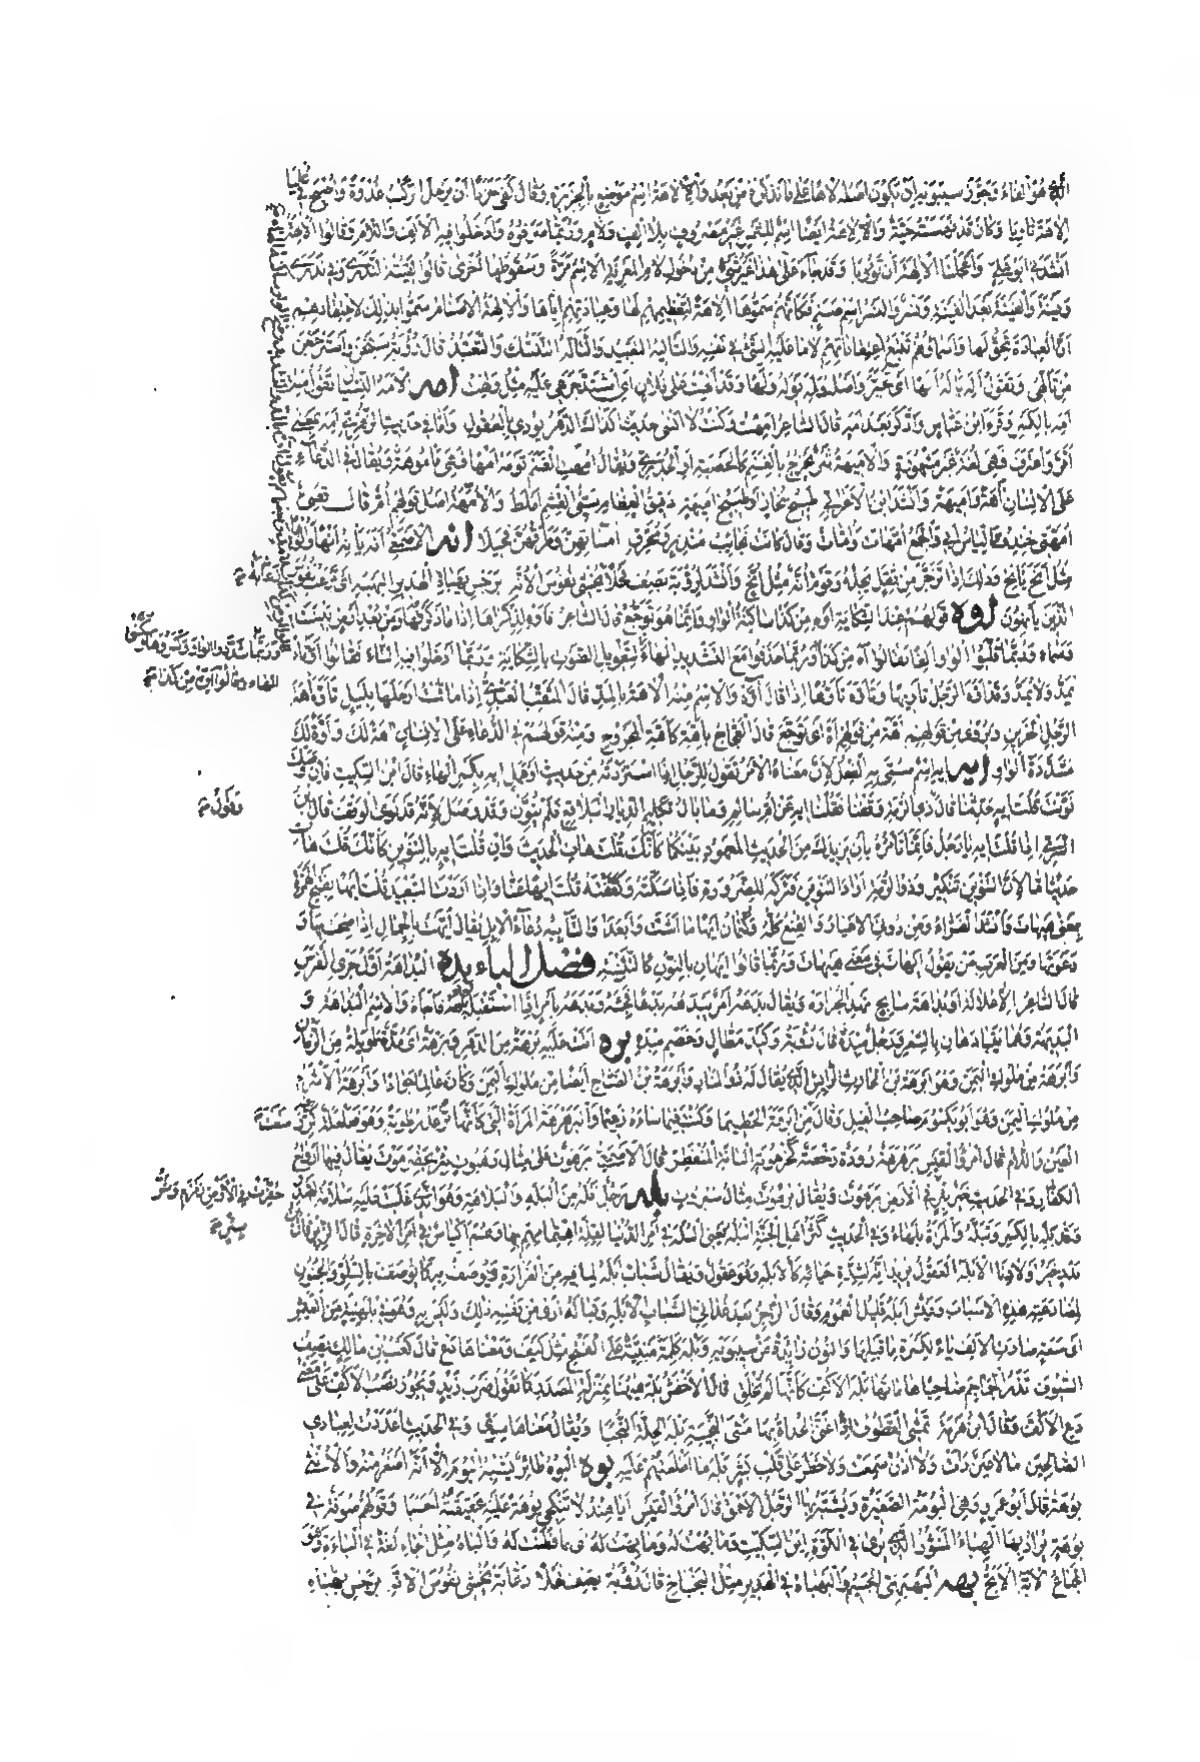 هو لغة وجوز سيبويه أن يكون أصله لاها على ما نذكره من بعد والإلاهة اسم موضع بالجزيرة وقال كفى حزنا أن يرحل الركب غدوة وأصبح في عليا
إلاهة ثاويا وكان قد نهسته حية والإلاهة أيضا اسم للشمس غير مصروف بلا ألف ولام وربما صرفوه وأدخلوا فيه الألف واللام وقالوا الإلاهة
أنشدني أبو علي وأعجلنا الإلاهة أن تؤوبا وقد جاء على هذا غير شيء من دخول لام المعرفة الاسم مرة وسقوطها أخرى قالوا لقيته الندرى وفي ندرى
وفينة والفينة بعد الفينة ونسر والنسر اسم صنم فكأنهم سموها إلاهة لتعظيمهم لها وعبادتهم إياها والآلهة الأصنام سموا بذلك لاعتقادهم
أن العبادة تحق لها وأسماؤهم تتبع اعتقاداتهم لا ما عليه الشيء في نفسه والتأليه التعبيد والتأله التنسك والتعبد قال رؤبة سبحن واسترجعن
من تألهي وتقول أله يأله ألها أي تحير وأصله وله يوله ولها وقد ألهت على فلان أي اشتد جزعي عليه مثل ولهت امه الأمه النسيان تقول منه
أمه بالكسر وقرأ ابن عباس وادكر بعد أمه قال الشاعر أمهت وكنت لا أنسى حديثا كذاك الدهر يودي بالعقول وأما في حديث الزهري أمه بمعنى
أقر واعترف فهي لغة غير مشهورة والأميهة بثر يخرج بالغنم كالحصبة أو الجدري ويقال أمهت الغنم تؤمه أمها فهي مأموهة ويقال في الدعاء
على الإنسان آهة وأميهة وأنشد ابن الأعرابي طبيخ نحاز أو طبيخ أميهة دقيق العظام سيئ القشم أملط والأمهة أصل قولهم أم قال قصي
أمهتي خندف والياس أبي والجمع أمهات وأمات وقال كانت نجائب منذر ومحرق أماتهن وطرقهن فحيلا انه الأصمعي أنه يأنه أنها وأنوها
مثل أنح يأنح وذلك إذا تزحر من ثقل يجده وقوم أنه مثل أنح وأنشد لرؤبة يصف فحلا يخشي نفوس الأنه برجس بهباه الهدير البهبه أي يرعب نفوس
الذين يأنهون اوه قولهم عند الشكاية أوه من كذا ساكنة الواو وإنما هو توجع قال الشاعر فأوه لذكراها إذا ما ذكرتها ومن بعد أرض بيننا
وسماء وربما قلبوا الواو ألفا فقالوا آه من كذا وربما حذفوا مع التشديد الهاء لتطويل الصوت بالشكاية وربما أدخلوا فيه التاء فقالوا أوتاه
يمد ولا يمد وقد أوه الرجل تأويها وتأوه تأوها إذا قال أوه والاسم منه الآهة بالمد قال المثقب العبدي إذا ما قمت أرحلها بليل تأوه آهة
الرجل الحزين ويروى من قولهم أهة أي توجع قال العجاج بأهة كأهة المجروح ومنه قولهم في الدعاء على الإنسان آهة لك وأوة لك
مشددة الواو ايه إيه اسم سمي به الفعل لأن معناه الأمر تقول للرجل إذا استزدته من حديث أو عمل إيه بكسر الهاء قال ابن السكيت فإن وصلت
نونت فقلت إيه حدثنا قال ذو الرمة وقفنا فقلنا إيه عن أم سالم وما بال تكليم الديار البلاقع فلم ينون وقد وصل لأنه قد نوى الوقف قال ابن
السري إذا قلت إيه يا رجل فإنما تأمره بأن يزيدك من الحديث المعهود بينكما كأنك قلت هات الحديث وإن قلت إيه بالتنوين كأنك قلت هات
حديثا ما لأن التنوين تنكير وذو الرمة أراد التنوين فتركه للضرورة فإذا أسكته وكففته قلت إيها عنا وإذا أردت التبعيد قلت أيها بفتح الهمزة
بمعنى هيهات وأنشد الفراء ومن دوني الأعيار والقنع كله وكتمان أيها ما أشت وأبعدا والتأييه دعاء الإبل يقال أيهت بالجمال إذا صحت بها و
دعوتها ومن العرب من يقول أيهات في معنى هيهات وربما قالوا أيهان بالنون كالتثنية فصل الباء بده البداهة أول جري الفرس
قال الشاعر إلا علالة أو بداهة سابح نهد الجزاره ويقال بدهه أمر يبدهه بدها فجئه وبدهه بأمر إذا استقبله به مفاجأة والاسم البداهة و
البديهة وهما يتبادهان بالشعر ورجل مبده قال رؤبة وكيد مطال وخصم مبده بره أتت عليه برهة من الدهر وبرهة أي مدة طويلة من الزمان
وأبرهة من ملوك اليمن وهو أبرهة بن الحارث الرائش الذي يقال له ذو المنار وأبرهة بن الصباح أيضا من ملوك اليمن وكان عالما جوادا وأبرهة الأشرم
من ملوك اليمن وهو أبو يكسوم صاحب الفيل وقال من أبرهة الحطيما وكنت فيما ساءه زعيما والبرهرهة المرأة التي كأنها ترعد رطوبة وهو فعلعلة كرر فيه
العين واللام قال امرؤ القيس برهرهة رؤدة رخصة كخرعوبة البانة المنفطر قال الأصمعي برهوت على مثال رهبوت بئر بحضرموت يقال فيها أرواح
الكفار وفي الحديث شر بئر في الأرض برهوت ويقال برهوت مثال سبروت بله رجل أبله بين البله والبلاهة وهو الذي غلبت عليه سلامة الصدر
وقد بله بالكسر وتبله والمرأة بلهاء وفي الحديث أكثر أهل الجنة البله يعني البله في أمر الدنيا لقلة اهتمامهم بها وهم أكياس في أمر الآخرة قال الزبرقان بن
بدر خير أولادنا الأبله العقول يريد أنه لشدة حيائه كالأبله وهو عقول ويقال شباب أبله لما فيه من الغرارة يوصف به كما يوصف بالسلو والجنون
لمضارعته هذه الأسباب وعيش أبله قليل الغموم وقال الراجز بعد غداني الشباب الأبله وتباله أرى من نفسه ذلك وليس به وهو في بلهنية من العيش
أي سعة صارت الألف ياء لكسرة ما قبلها والنون زائدة عن سيبويه وبله كلمة مبنية على الفتح مثل كيف ومعناها دع قال كعب بن مالك يصف
السيوف تذر الجماجم ضاحيا هاماتها بله الأكف كأنها لم تخلق قال الأخفش بله هاهنا بمنزلة المصدر كما تقول ضرب زيد ويجوز نصب الأكف على معنى
دع الأكف وقال ابن هرمة تمشي القطوف إذا غنى الحداة بها مشي النجيبة بله الجلة النجبا ويقال معناها سوى وفي الحديث أعددت لعبادي
الصالحين ما لا عين رأت ولا أذن سمعت ولا خطر على قلب بشر بله ما أطلعتهم عليه بوه البوه طائر يشبه البوم إلا أنه أصغر منه والأنثى
بوهة وقال أبو عمرو هي البومة الصغيرة ويشبه بها الرجل الأحمق قال امرؤ القيس أيا هند لا تنكحي بوهة عليه عقيقته أحسبا وقولهم صوفة في
بوهة يراد بها الهباء المنثور الذي يرى في الكوة ابن السكيت ما بهت له وما بهت له أي ما فطنت له والباه مثل الجاه لغة في الباءة وهو
الجماع الأبه الأبح بهه البهبهي الجسيم والبهباه في الهدير مثل البخباخ قال رؤبة يصف فحلا رعابة يخشي نفوس الأنه برجس بهباه